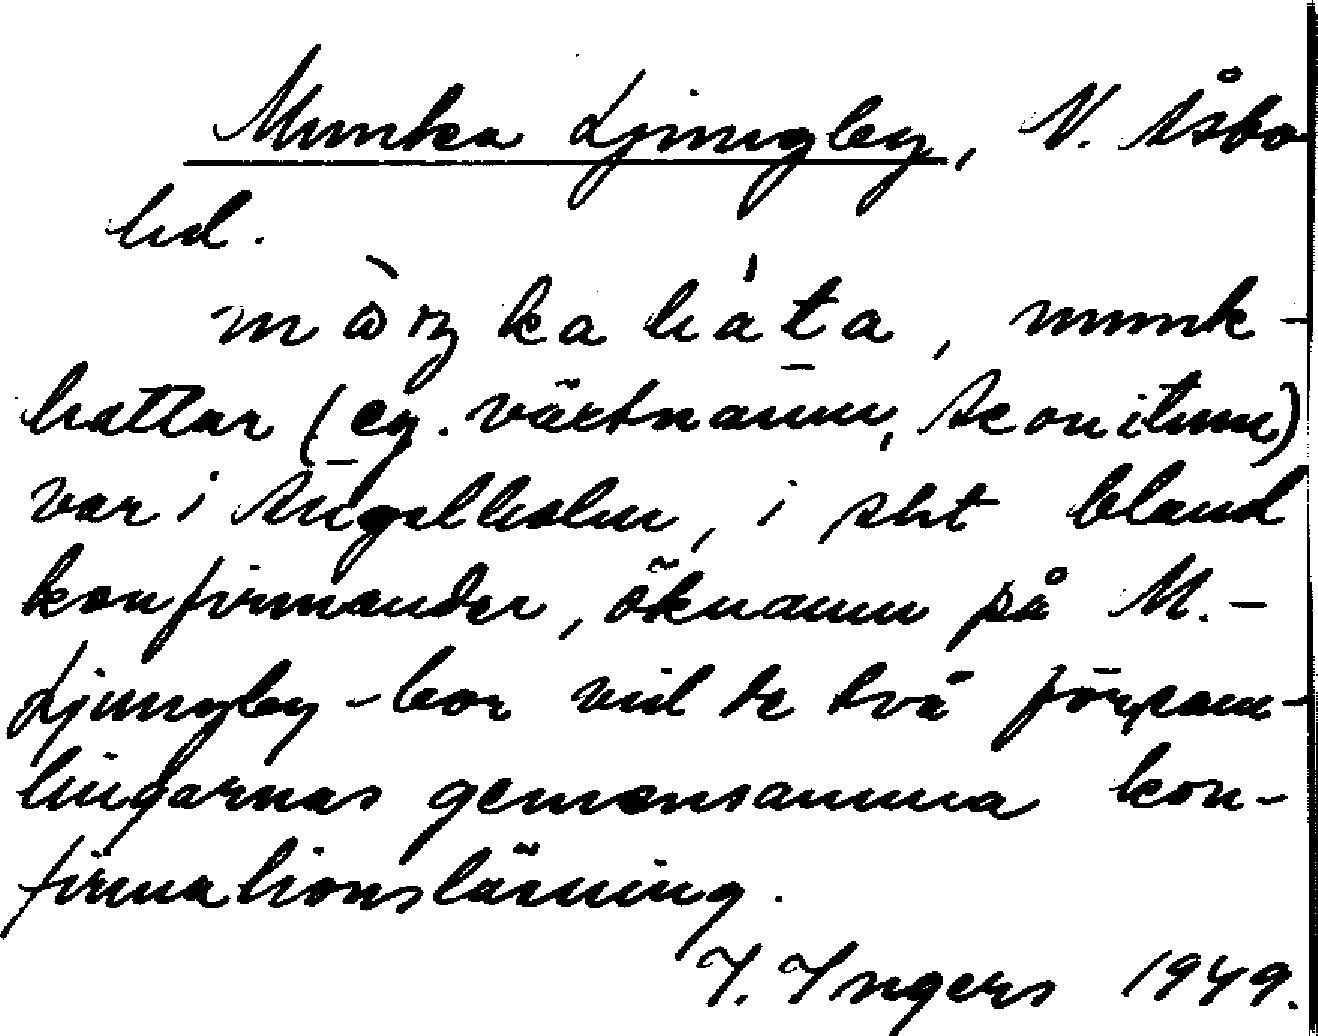 Munka Ljungby, N. Åsbo
hd.
mòŋkahát̲a, munk-
hattar (eg. växtnamn, Aconitum)
var i Ängelholm, i sht bland
konfirmander, öknamn på M.-
Ljungby-bor vid de två försam-
lingarnas gemensamma kon-
firmationsläsning.
I. Ingers 1949.